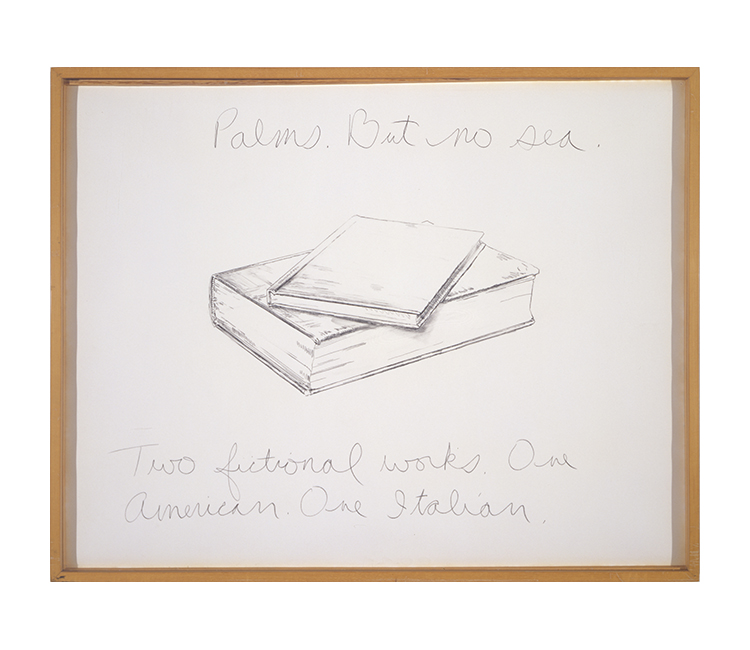 Palms. But no sea.
Two fictional works. One
American. One Italian.